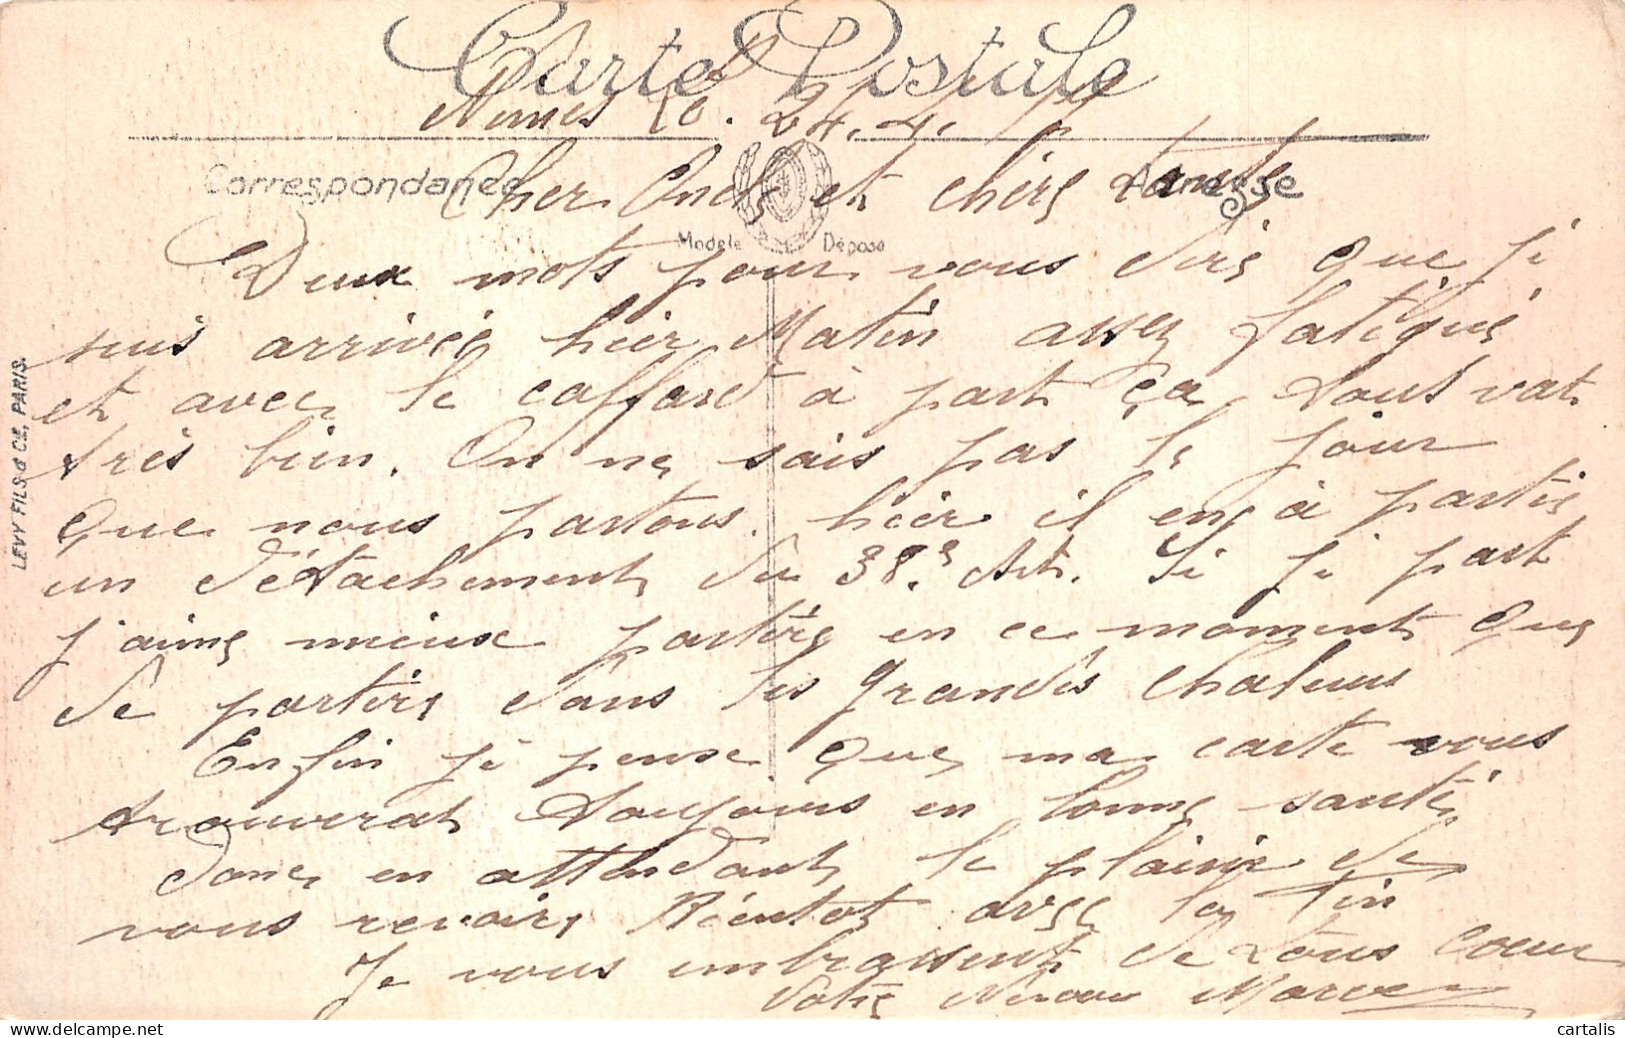 Carte Postale
Nimes le 24.4.17
Correspondance
Adresse
Cher Oncle et chère tante
Modèle Déposé
Deux mots pour vous dire que je
suis arrivée hier Matin assez fatigué
et avec le caffard à part ça tous vat
très bien. On ne sais pas le jour
que nous partons. hier il en à partis
un détachement du 38.e Art. Si je part
j'aime mieux partire en ce moment que
de partire dans les grandes chaleurs
Enfin je pense que ma carte vous
trouverat toujours en bonne santé
donc en attendant le plaisir de
vous revoire Bientot avec la fin
Je vous embrassent de tous coeur
Votre Neveu
LEVY FILS & CIE, PARIS.
cartalis